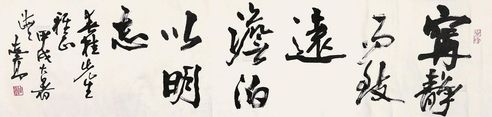 寧靜
而致
遠
澹泊
以明
志
先生
雅正
甲戌大暑